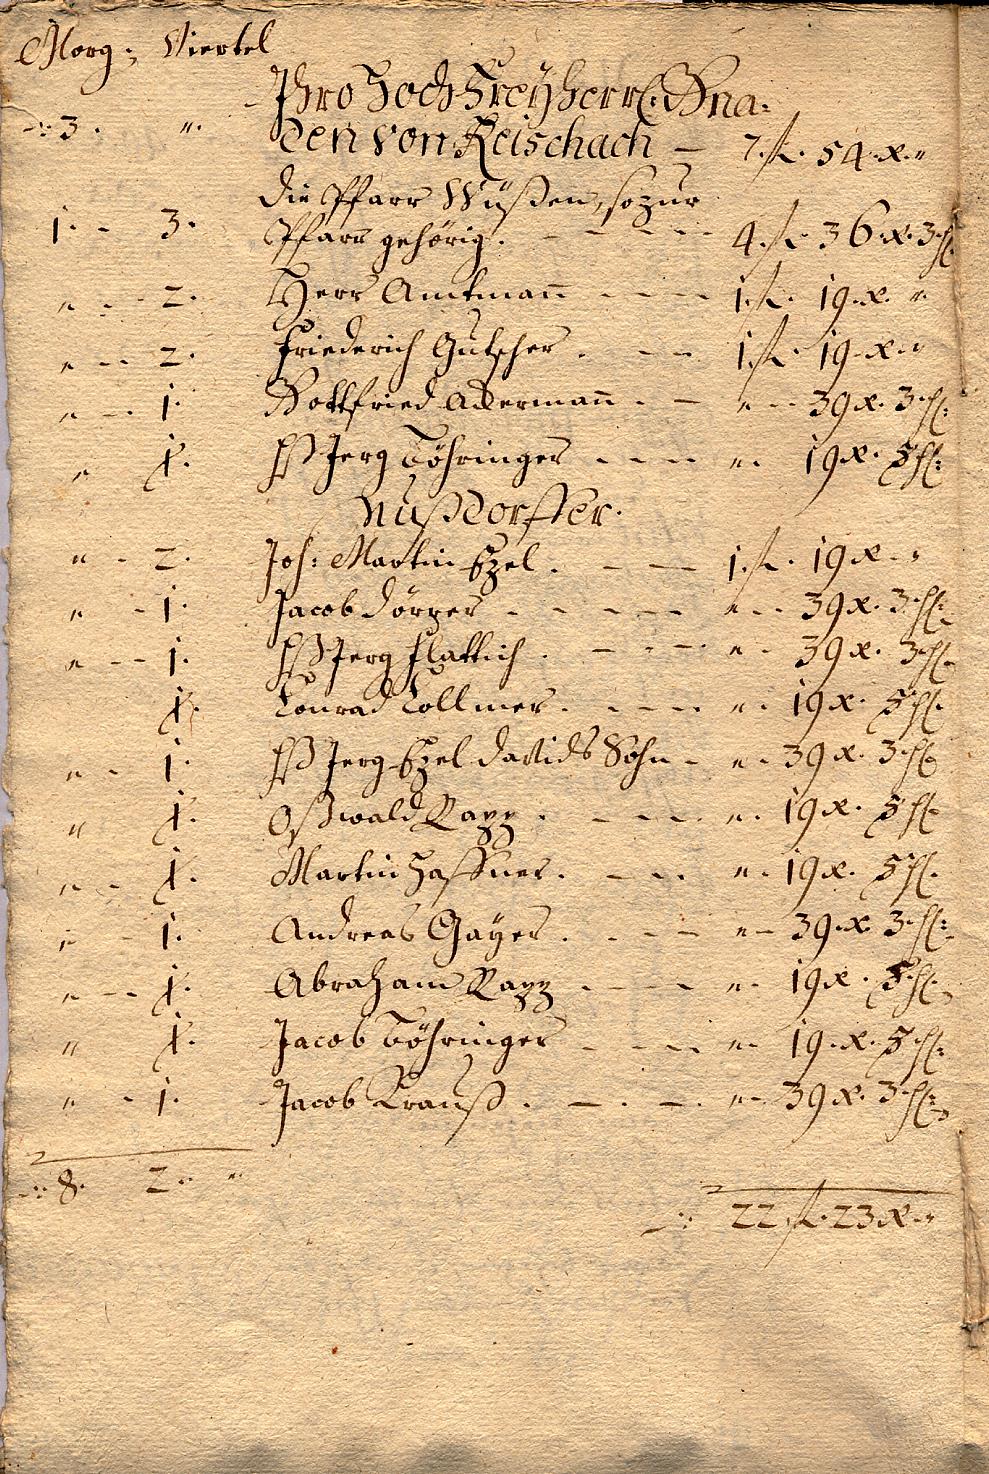 Morg: Viertel
Ihro Hoch Freyherrl: Gna-
3. ". den von Reischach — 7. fl. 54. x. "
die Pfarr Wüßen, so zur
1. - 3. Pfarr gehörig. - - - - 4. fl. 36. x. 3. hl.
" - - 2. Herr Amtmann - - - - 1. fl. 19. x. "
" - - 2. Friederich Gutscher. - - 1. fl. 19. x. "
" - - 1. Gottfried Ackermann. - " - - 39 x. 3. hl.
" ½. Hß Jerg Böhringer - - - - ". 19 x. 5 hl.
Nußdorffer.
" - 2. Joh: Martin Ezel. - - - 1. fl. 19 x. - "
" - 1. Jacob Dörrer - - - - - " - - 39 x. 3. hl.
" - - 1. Hß Jerg Flattich. - - - - ". 39 x. 3 hl.
½. Conrad Vollmer. - - - - ". 19 x. 5 hl.
" - 1. Hß Jerg Ezel Davids Sohn - ". 39 x. 3 hl.
" ½. Oßwald Rapp. - - - - ". 19 x. 5 hl.
" - ½. Martin Haffner. - - - ". 19 x. 5 hl.
" - 1. Andreas Gayer. - - - - " - 39. x. 3. hl.
" - - ½. Abraham Rapp - - - - ". 19 x. 5. hl.
" ½. Jacob Böhringer - - - - ". 19. x. 5. hl.
" - 1. Jacob Krauß. - - - - " - 39 x. 3. hl.
8. 2. " 22 fl. 23 x. "